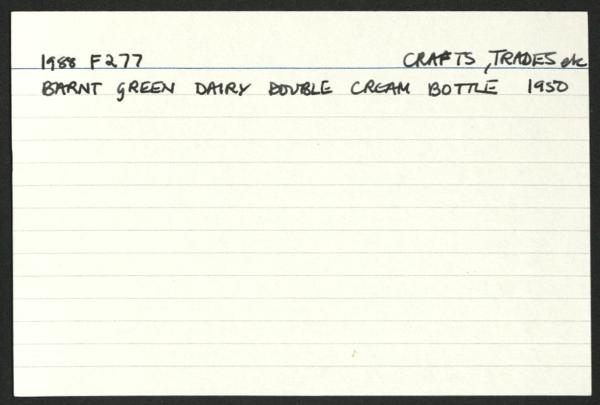 1988 F277 CRAFTS, TRADES etc
BARNT GREEN DAIRY DOUBLE CREAM BOTTLE 1950